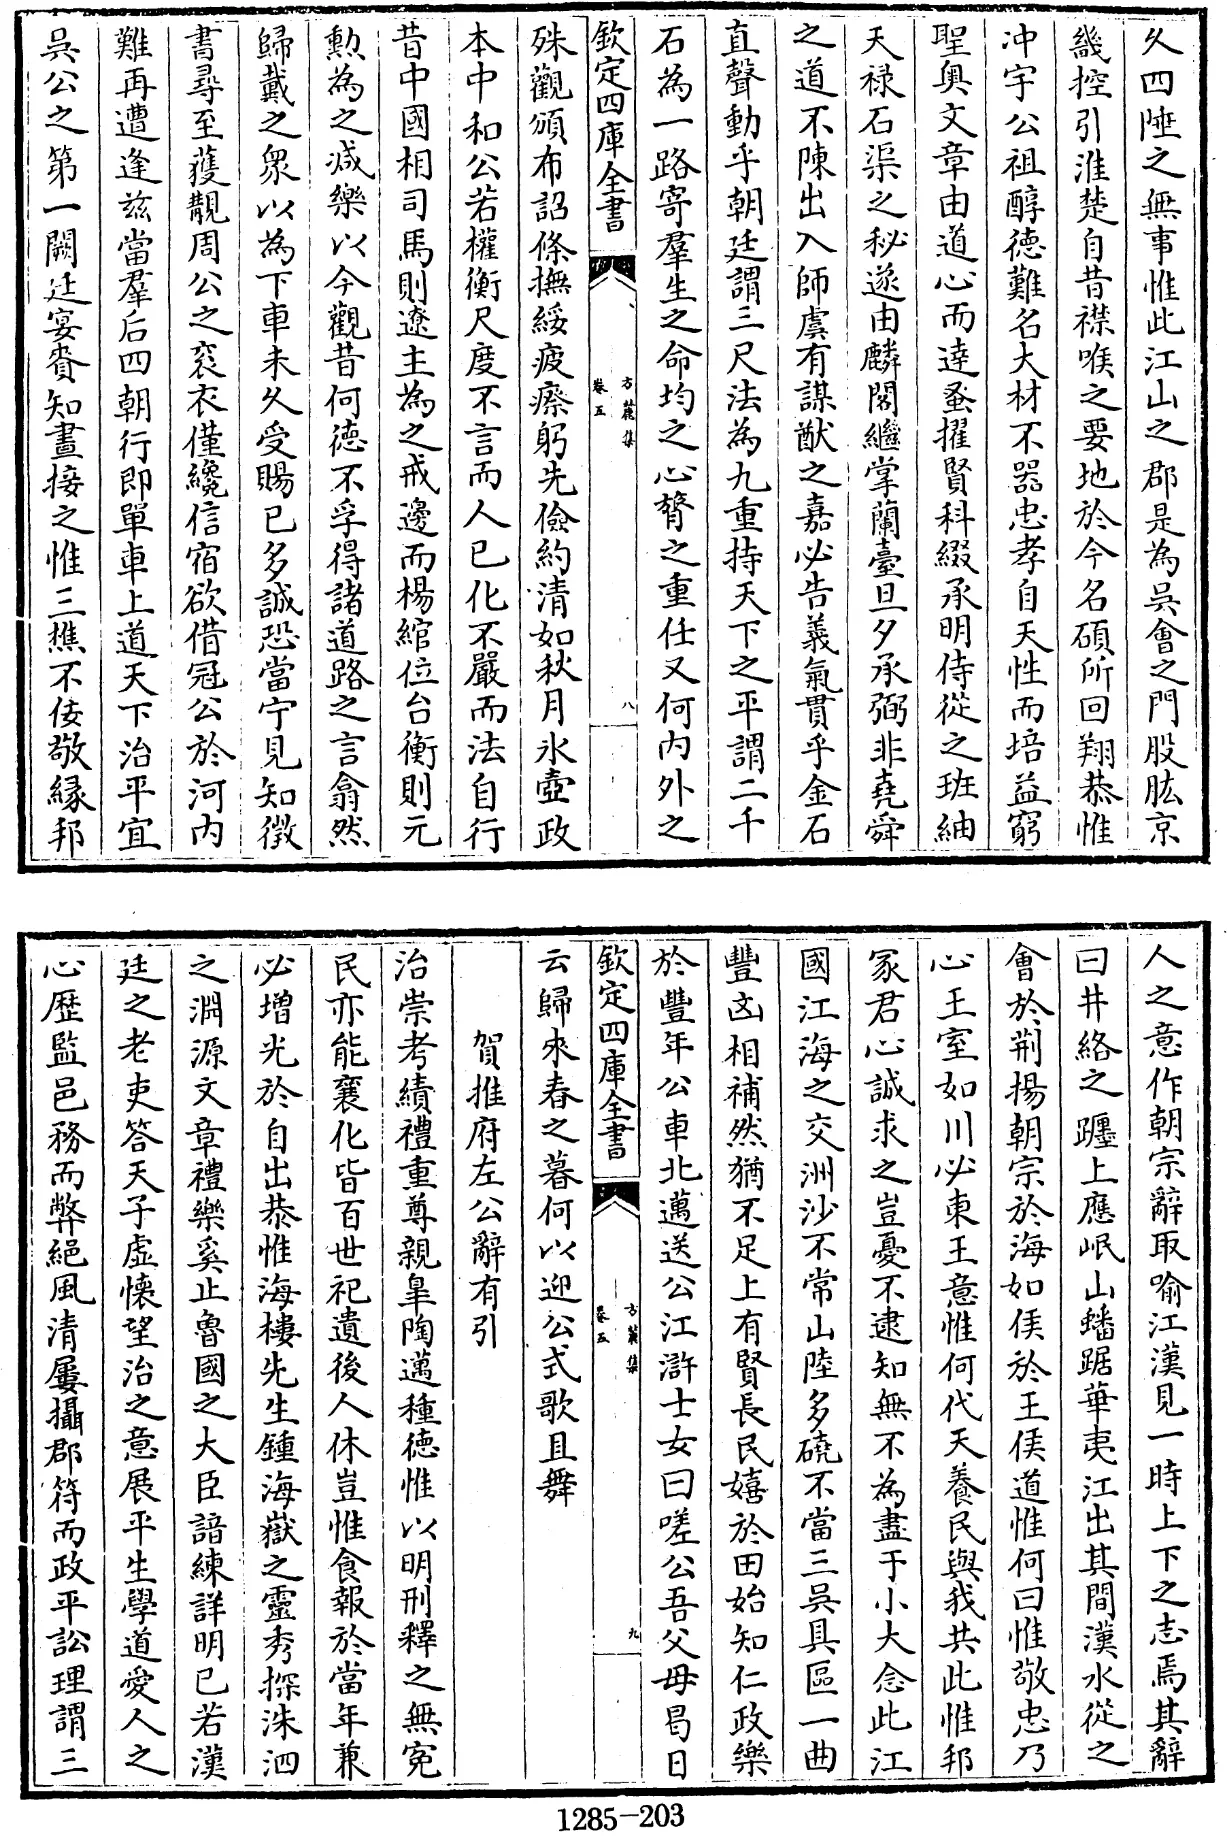 久四陲之無事惟此江山之郡是為吳會之門股肱京
畿控引淮楚自昔襟喉之要地於今名碩所回翔恭惟
冲宇公祖醇德難名大材不器忠孝自天性而培益窮
聖奥文章由道心而逹蚤擢賢科綴承明侍從之班紬
天禄石渠之秘遂由麟閣繼掌蘭臺旦夕承弼非堯舜
之道不陳出入師虞有謀猷之嘉必告義氣貫乎金石
直聲動乎朝廷謂三尺法為九重持天下之平謂二千
石為一路寄羣生之命均之心膂之重任又何内外之
欽定四庫全書
方麓集
卷五
八
殊觀頒布詔條撫綏疲瘵躬先儉約清如秋月氷壺政
本中和公若權衡尺度不言而人已化不嚴而法自行
昔中國相司馬則遼主為之戒邊而楊綰位台衡則元
勲為之减樂以今觀昔何德不孚得諸道路之言翕然
歸戴之衆以為下車未久受賜已多誠恐當宁見知徵
書尋至獲覩周公之衮衣僅纔信宿欲借冦公於河内
難再遭逢兹當羣后四朝行即單車上道天下治平宜
吳公之第一闕廷宴賚知晝接之惟三樵不佞敬緣邦
人之意作朝宗辭取喻江漢見一時上下之志焉其辭
曰井絡之躔上應岷山蟠踞華夷江出其間漢水從之
會於荆揚朝宗於海如侯於王侯道惟何曰惟敬忠乃
心王室如川必東王意惟何代天養民與我共此惟邦
冢君心誠求之豈憂不逮知無不為盡于小大念此江
國江海之交洲沙不常山陸多磽不當三吳具區一曲
豐凶相補然猶不足上有賢長民嬉於田始知仁政樂
於豐年公車北邁送公江滸士女曰嗟公吾父母曷日
欽定四庫全書
方麓集
卷五
九
云歸來春之暮何以迎公式歌且舞
賀推府左公辭有引
治崇考績禮重尊親臯陶邁種德惟以明刑釋之無寃
民亦能襄化皆百世祀遺後人休豈惟食報於當年兼
必增光於自出恭惟海樓先生鍾海嶽之靈秀探洙泗
之淵源文章禮樂奚止魯國之大臣諳練詳明已若漢
廷之老吏答天子虛懷望治之意展平生學道愛人之
心歷監邑務而弊絕風清屢攝郡符而政平訟理謂三
1285-203